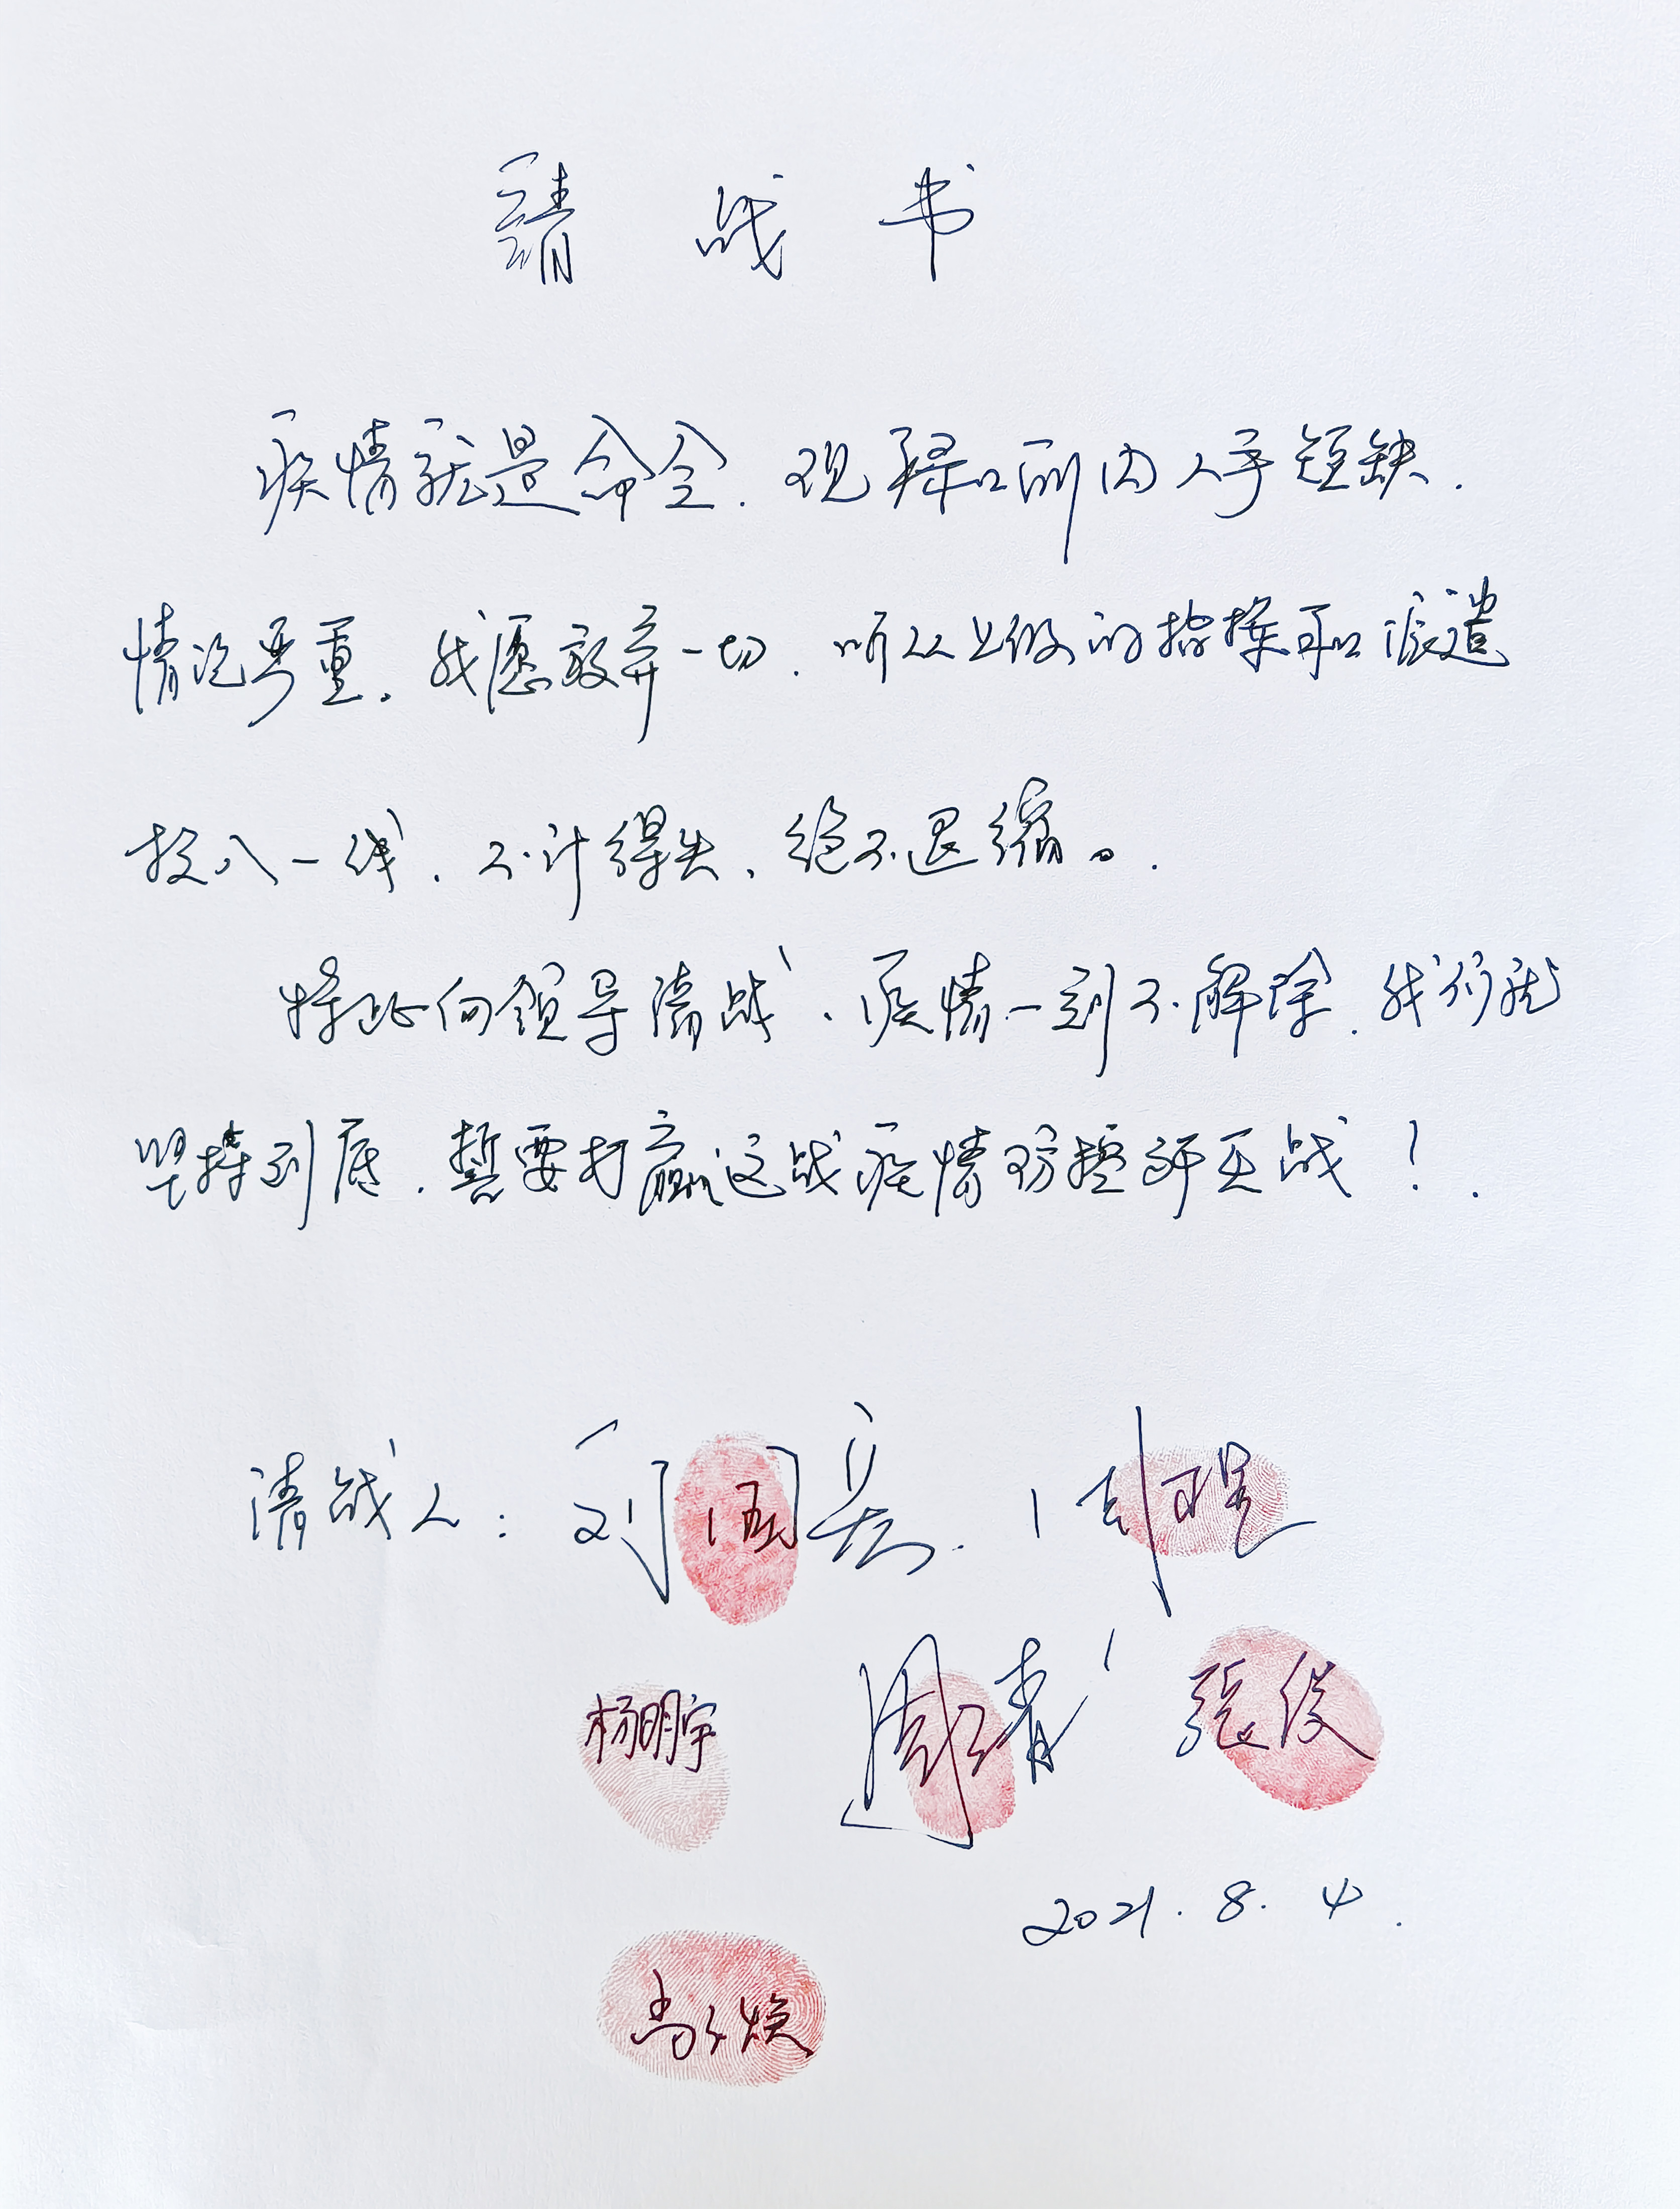 请战书
疫情就是命令.现采口所内人手短缺.
情况严重.我愿放弃一切.听从上级的指挥和派遣
投入一线.不计得失.绝不退缩。.
特此向领导请战.疫情一刻不解除.我们就
坚持到底.誓要打赢这战疫情防控歼灭战!.
请战人:刘国兵.
杨明宇 周青 张俊
2021.8.4.